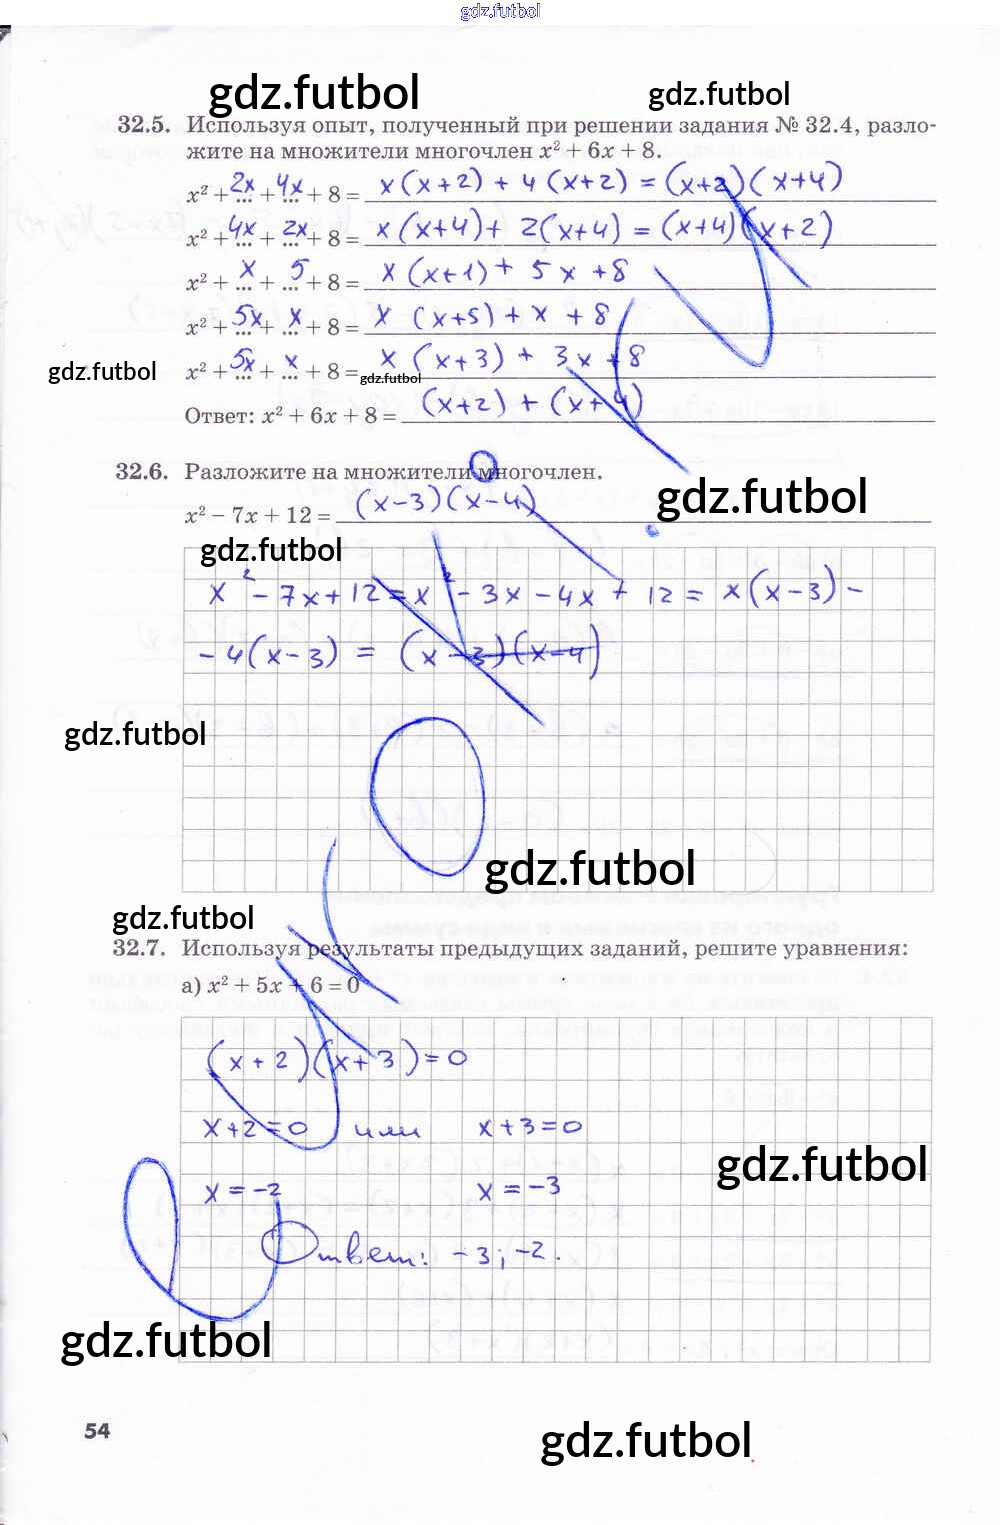 gdz.futbol
gdz.futbol
gdz.futbol
32.5. Используя опыт, полученный при решении задания № 32.4, разло-
жите на множители многочлен x² + 6x + 8.
x² + 2x + 4x + 8 = x(x+2) + 4(x+2) = (x+2)(x+4)
x² + 4x + 2x + 8 = x(x+4) + 2(x+4) = (x+4)(x+2)
x² + x + 5 + 8 = x(x+1) + 5x + 8
x² + 5x + x + 8 = x(x+5) + x + 8
x² + 5x + x + 8 = x(x+3) + 3x + 8
gdz.futbol
gdz.futbol
Ответ: x² + 6x + 8 = (x+2) + (x+4)
32.6. Разложите на множители многочлен.
gdz.futbol
x² – 7x + 12 = (x–3)(x–4)
gdz.futbol
x² – 7x + 12 = x² – 3x – 4x + 12 = x(x–3) –
– 4(x–3) = (x–3)(x–4)
gdz.futbol
gdz.futbol
gdz.futbol
32.7. Используя результаты предыдущих заданий, решите уравнения:
а) x² + 5x + 6 = 0
(x+2)(x+3) = 0
x+2=0 или x+3=0
gdz.futbol
x = –2 x = –3
Ответ: –3; –2.
gdz.futbol
54
gdz.futbol